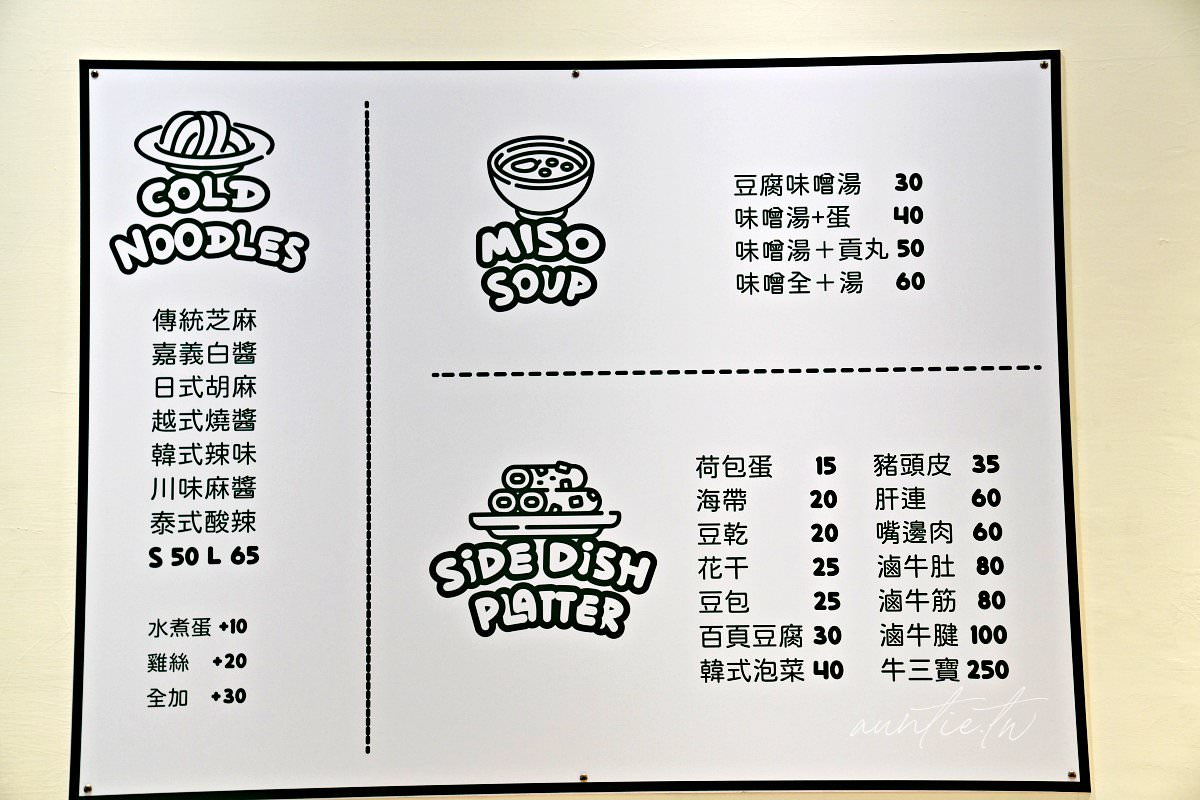 COLD
NOODLES
傳統芝麻
嘉義白醬
日式胡麻
越式燒醬
韓式辣味
川味麻醬
泰式酸辣
S 50 L 65
水煮蛋 +10
雞絲 +20
全加 +30
MISO
SOUP
豆腐味噌湯 30
味噌湯+蛋 40
味噌湯＋貢丸 50
味噌全＋湯 60
SiDE DiSH
PLATTER
荷包蛋 15 豬頭皮 35
海帶 20 肝連 60
豆乾 20 嘴邊肉 60
花干 25 滷牛肚 80
豆包 25 滷牛筋 80
百頁豆腐 30 滷牛腱 100
韓式泡菜 40 牛三寶 250
auntie.tw